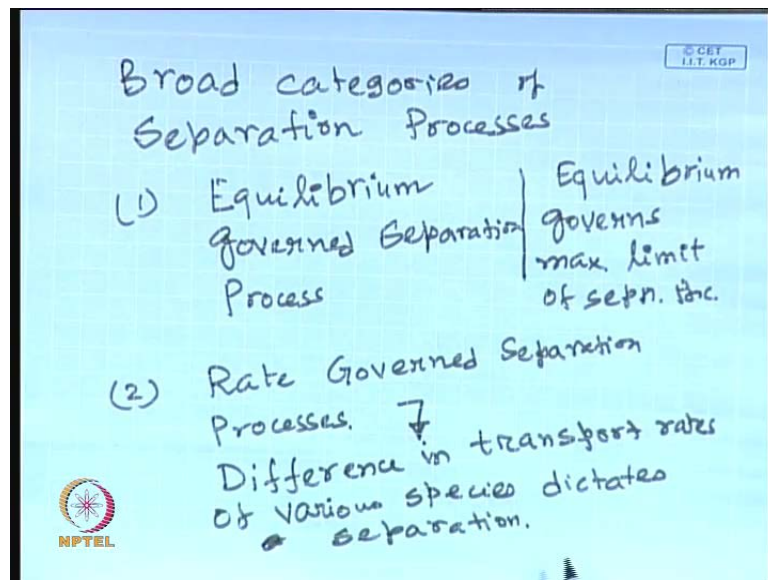 © CET
I.I.T. KGP
Broad categories of
Separation Processes
(1) Equilibrium
governed Separation
Process
Equilibrium
governs
max. limit
of sepn.
(2) Rate Governed Separation
Processes.
Difference in transport rates
of various species dictates
separation.
NPTEL